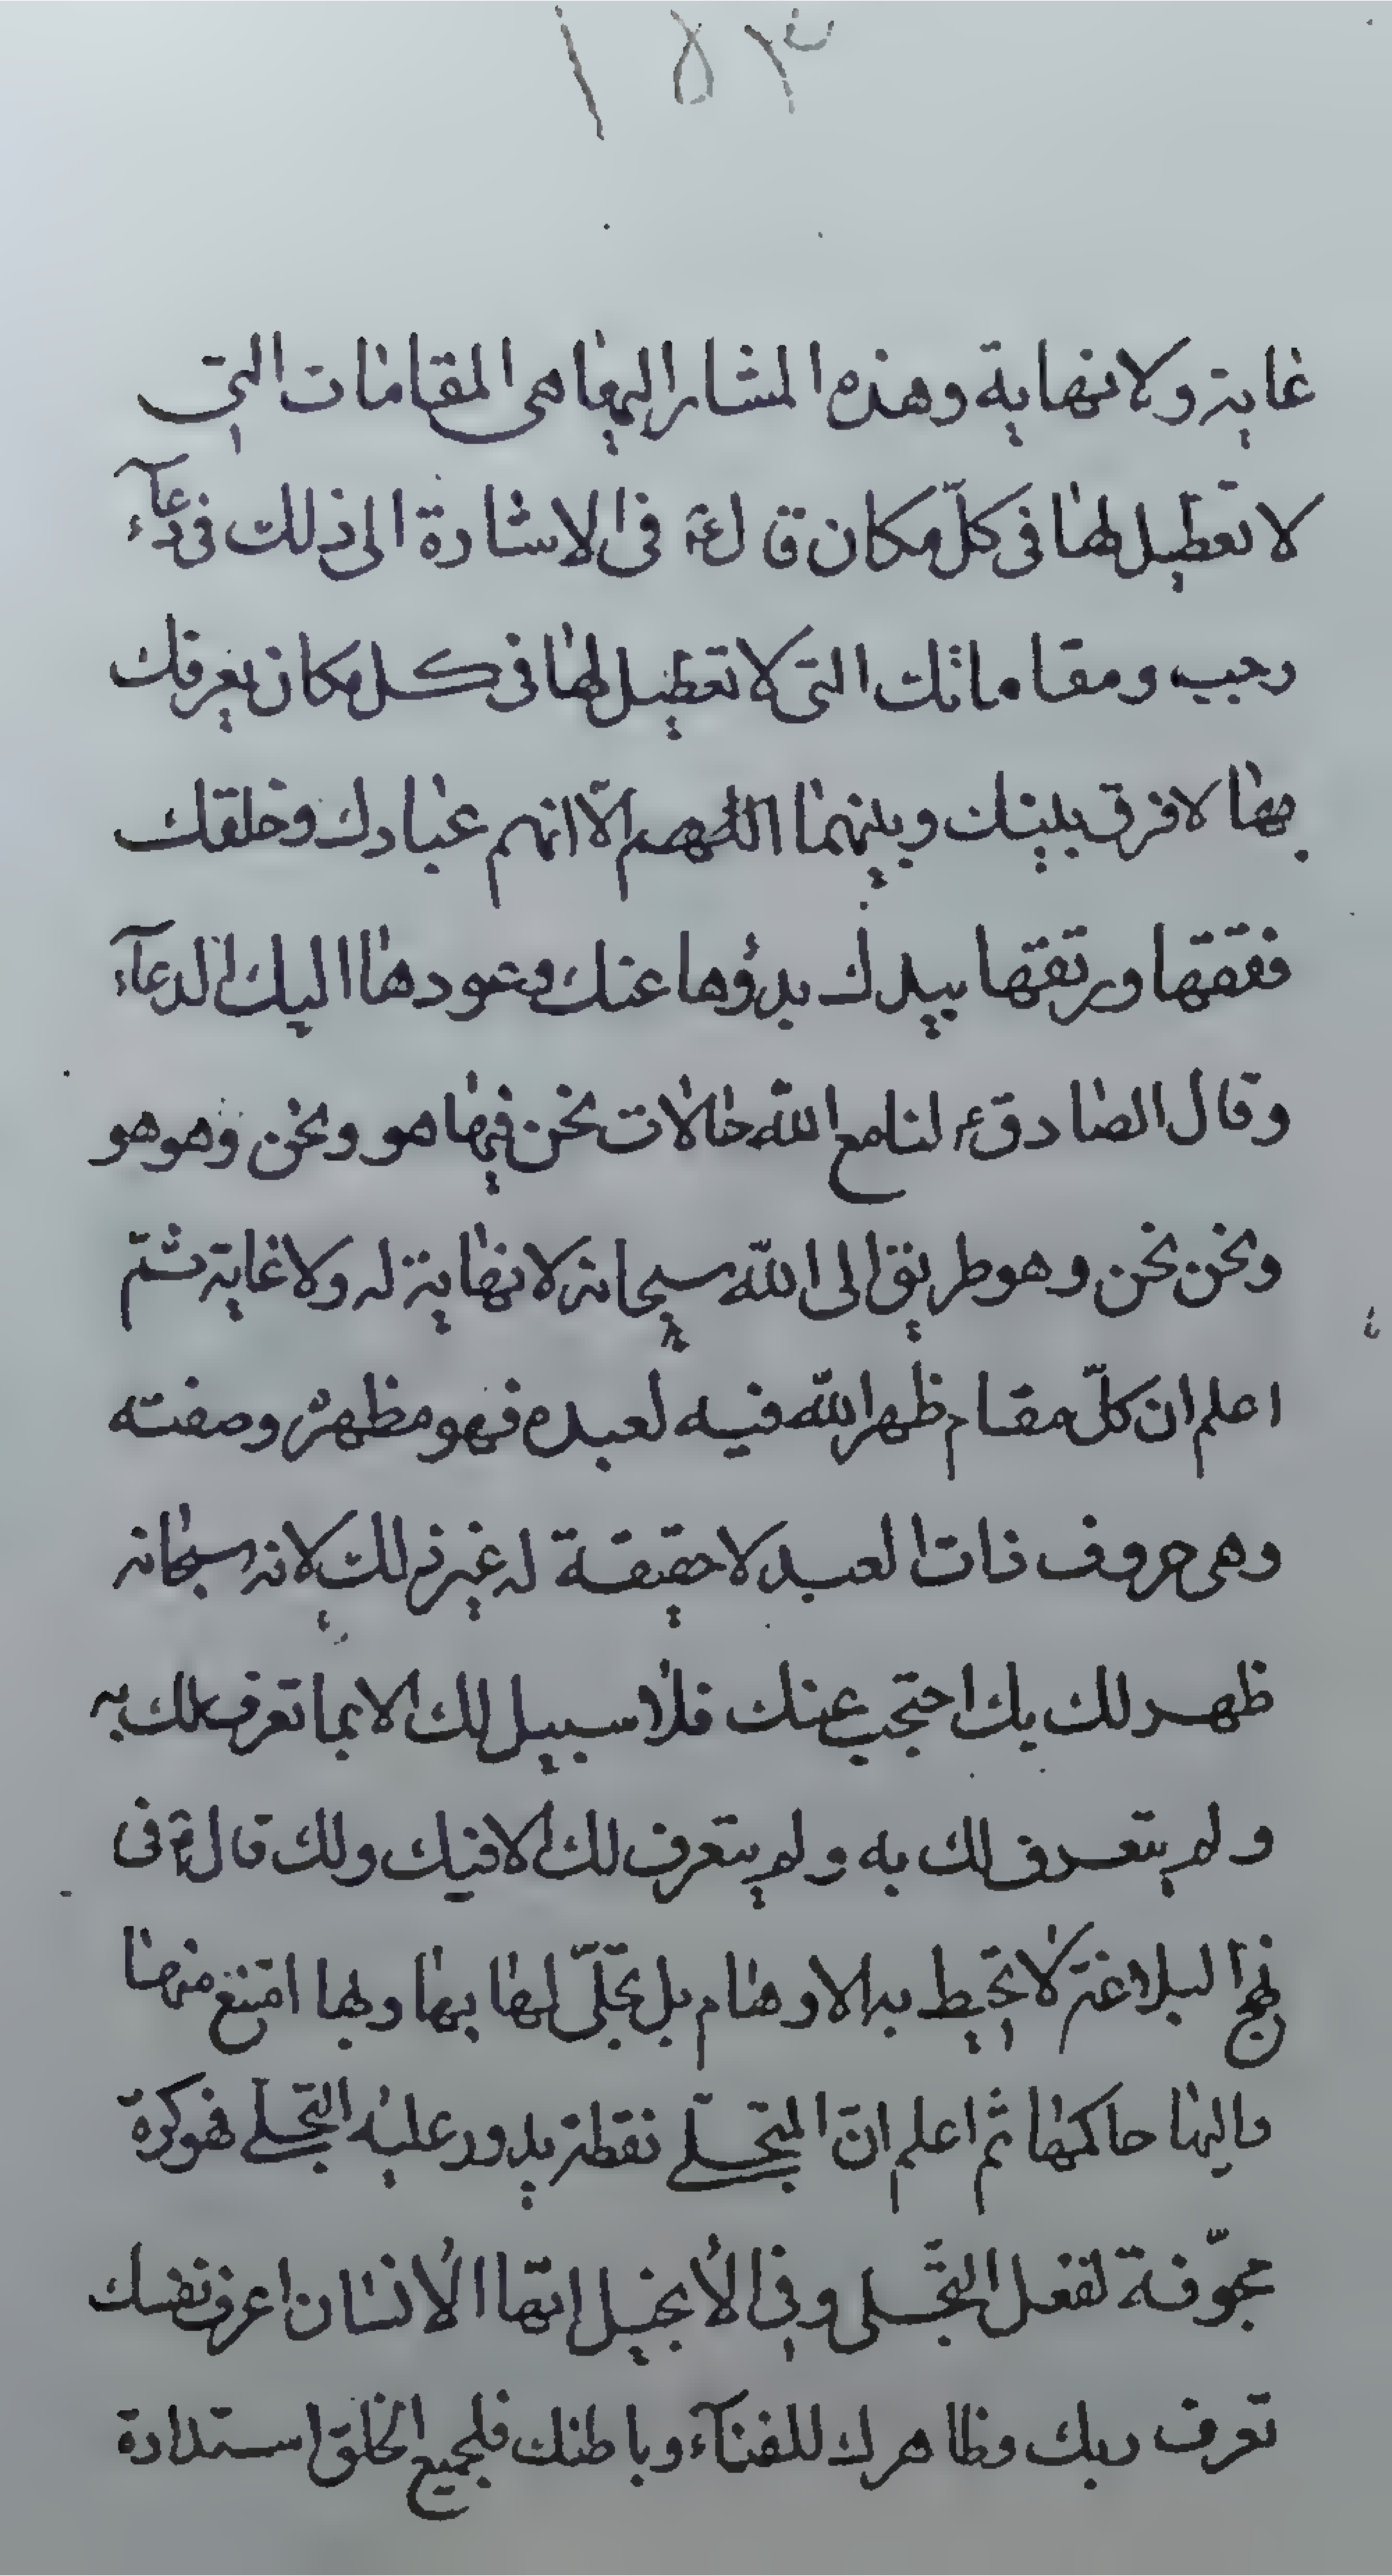 ١٥٣
غاية ولا نهاية وهذه المشار اليها هي المقامات التي
لا تعطيل لها في كلّ مكان قال ع في الاشارة الى ذلك في دعآء
رجب ومقاماتك التي لا تعطيل لها في كل مكان يعرفك
بها لا فرق بينك وبينهما اللهم الّا انهم عبادك وخلقك
ففتقها ورتقها بيدك بدؤها عنك وعودها اليك الدعآء
وقال الصادق ع لنا مع الله حالات نحن فيها هو ونحن وهو هو
ونحن نحن وهو طريق الى الله سبحانه لا نهاية له ولا غاية ثمّ
اعلم ان كلّ مقام ظهر الله فيه لعبده فهو مظهره وصفته
وهي حروف ذات العبد لا حقيقة له غير ذلك لانه سبحانه
ظهر لك بك احتجب عنك فلا سبيل لك الا بما تعرف لك به
ولم يتعرف لك به ولم يتعرف لك الا فيك ولك قال ع في
نهج البلاغة لا تحيط به الاوهام بل تجلّى لها بها وبها امتنع منها
واليها حاكمها ثم اعلم انّ المتجلّي نقطة يدور عليه التجلي فهو كرة
مجوّفة لفعل التجّلي وفي الأنجيل إنّها الأنسان اعرف نفسك
تعرف ربك وظاهرك للفنآء وباطنك فلجميع الخلق استدارة